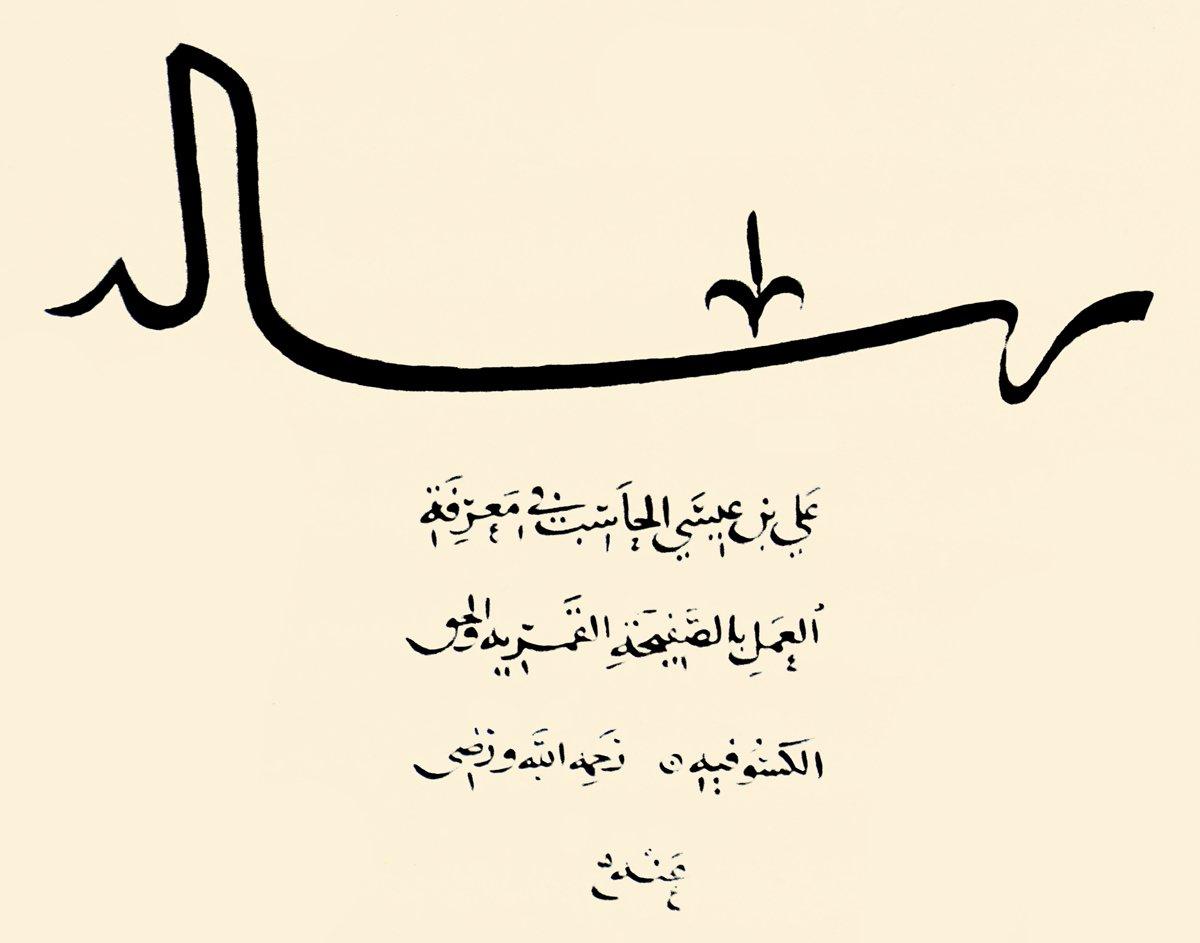 رساله
عَلي بن عيسَي الحاَسب في مَعرِفَة
العمَلِ بالصَّفيحَةِ القَمَريه والحق
الكَسُوفيه رَحمِه الله ورَضى
عَنْه